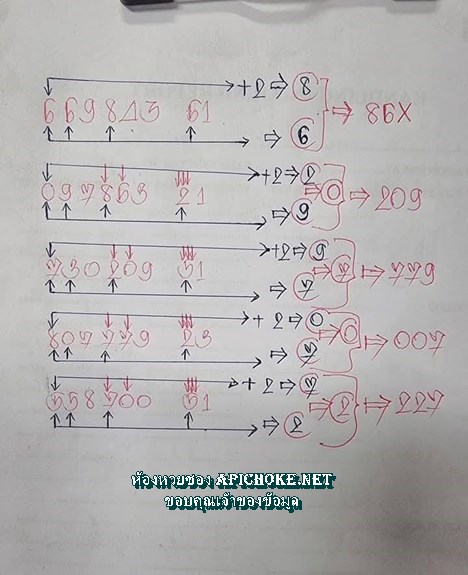 +2⇒8
669843 61 ⇒ 86X
⇒ 6
+2⇒2
097863 21 ⇒0 ⇒ 209
⇒9
+2⇒9
730209 51 ⇒7 ⇒779
⇒7
+2⇒0
807779 23 ⇒0 ⇒007
⇒7
+2⇒7
558700 51 ⇒2 ⇒227
⇒2
ห้องหวยซอง APICHOKE.NET
ขอบคุณเจ้าของข้อมูล